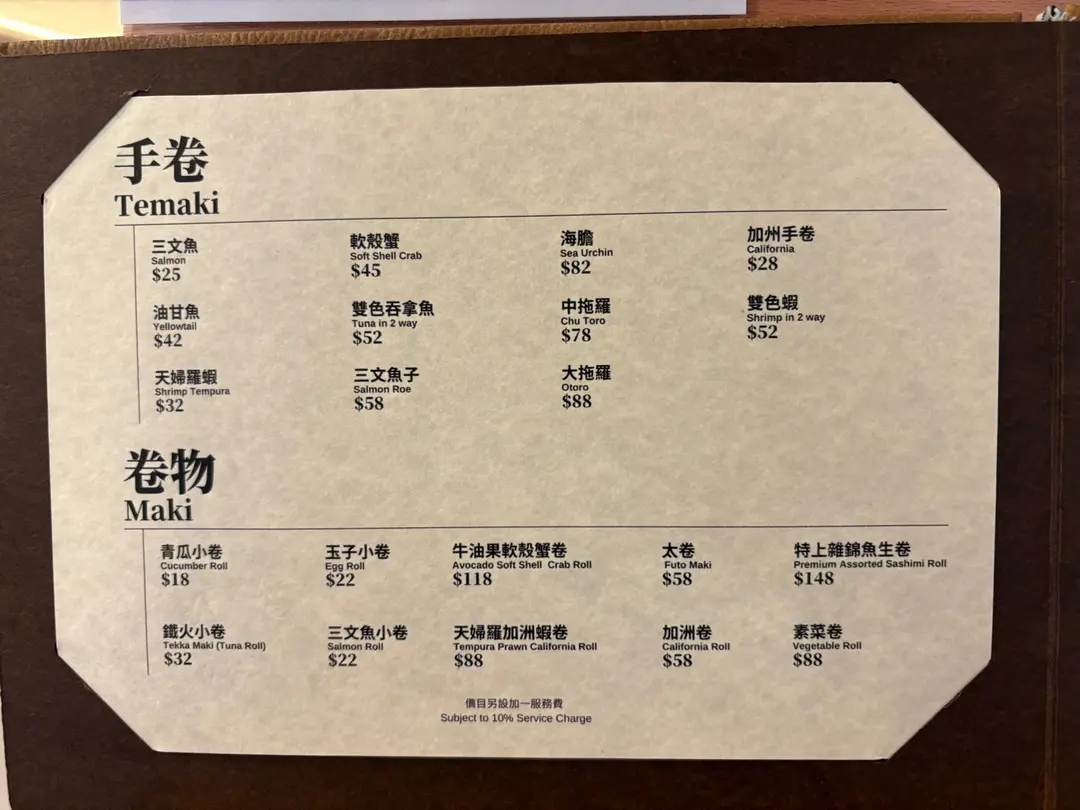 手卷
Temaki
三文魚
Salmon
$25
軟殼蟹
Soft Shell Crab
$45
海膽
Sea Urchin
$82
加州手卷
California
$28
油甘魚
Yellowtail
$42
雙色吞拿魚
Tuna in 2 way
$52
中拖羅
Chu Toro
$78
雙色蝦
Shrimp in 2 way
$52
天婦羅蝦
Shrimp Tempura
$32
三文魚子
Salmon Roe
$58
大拖羅
Otoro
$88
卷物
Maki
青瓜小卷
Cucumber Roll
$18
玉子小卷
Egg Roll
$22
牛油果軟殼蟹卷
Avocado Soft Shell Crab Roll
$118
太卷
Futo Maki
$58
特上雜錦魚生卷
Premium Assorted Sashimi Roll
$148
鐵火小卷
Tekka Maki (Tuna Roll)
$32
三文魚小卷
Salmon Roll
$22
天婦羅加洲蝦卷
Tempura Prawn California Roll
$88
加洲卷
California Roll
$58
素菜卷
Vegetable Roll
$88
價目另設加一服務費
Subject to 10% Service Charge